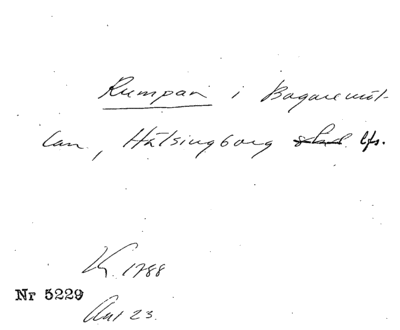 Rumpan i Bagaremöl-
lan, Hälsingborg lfs.
V. 1788
Nr 5229
Aul 23.